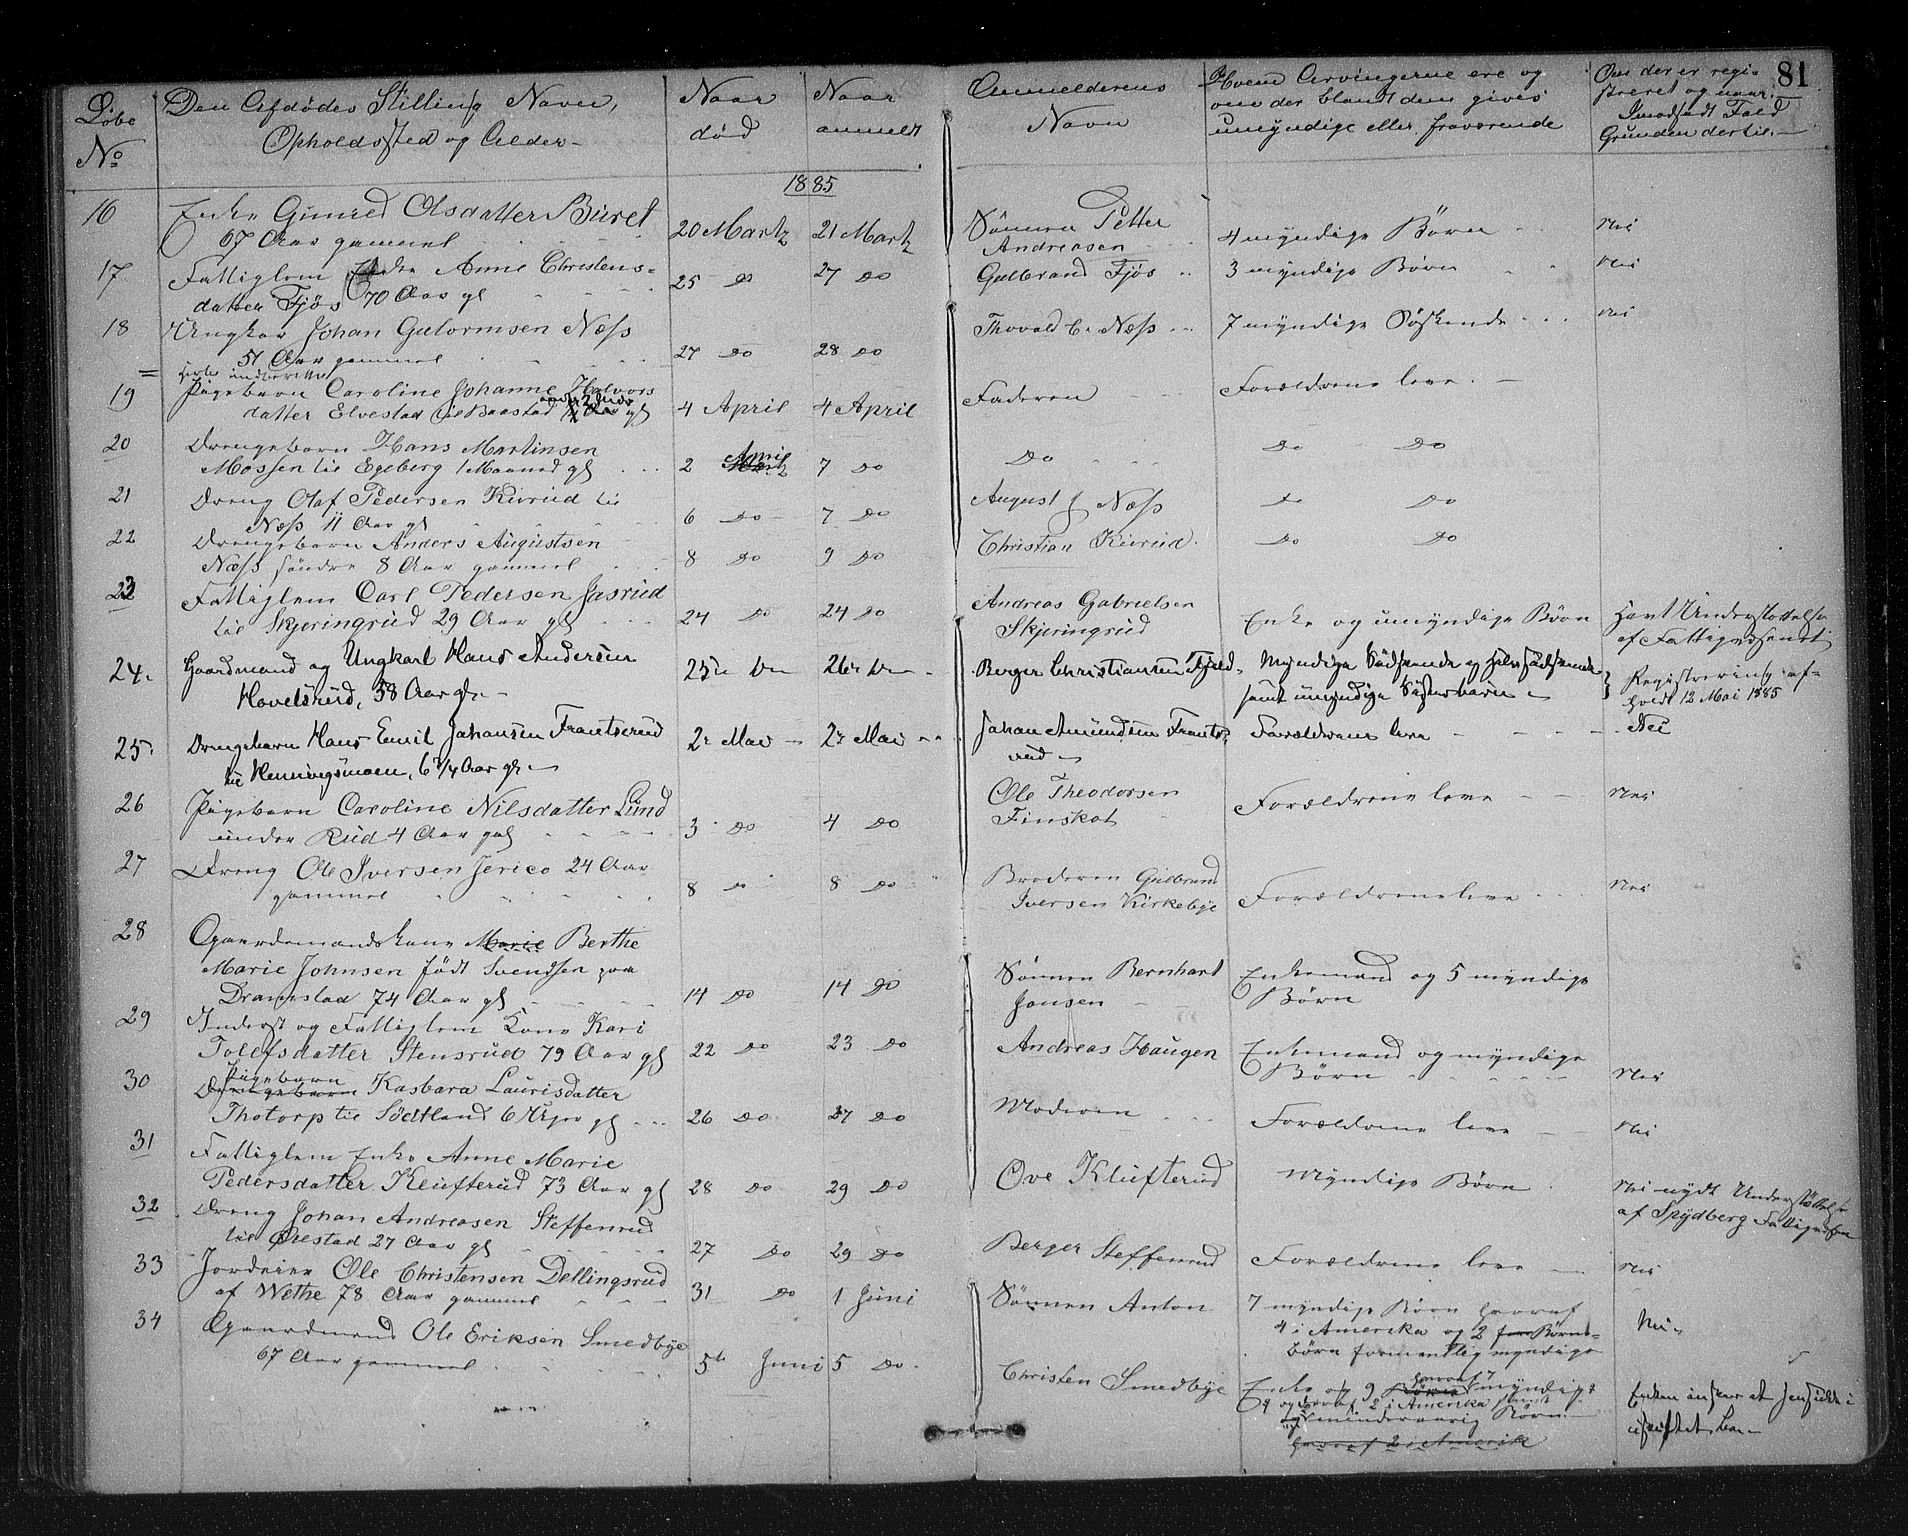 81
Løbe No
Den Afdødes Stilling Navn,
Opholdssted og Alder
Naar død
Naar anmeldt
Anmelderens Navn
Hvem Arvingerne ere og
om der blandt dem gives
umyndige eller fraværende
Om der er regi-
streret og naar.
Imodsadt Fald
Grunden dertil.
1885
16 Enke Gunild Olsdatter Buret
67 Aar gammel 20 Martz 21 Martz Sønnen Petter
Andreasen 4 myndige Børn Nei
17 Fattiglem Enke Anne Christens-
datter Fjøs 70 Aar gl 25 Do 27 Do Gulbrand Fjøs 3 myndige Børn Nei
18 Ungkar Johan Gutormsen Næss
51 Aar gammel 27 Do 28 Do Thovald C. Næss 7 myndige Søskende Nei
19 Pigebarn Caroline Johanne Halvors
datter Elvestad til Baastad Aar gl 4 April 4 April Faderen Forældrene leve
20 Drengebarn Hans Martinsen
Mossen til Egeberg 1 Maaned gl 2 April Martz 7 Do Do Do Do
21 Dreng Olaf Pedersen Kirud til
Næss 11 Aar gl 6 Do 7 Do August Næss Do Do
22 Drengebarn Anders Augustsen
Næss søndre 8 Aar gammel 8 Do 9 Do Christian Kirud Do Do
23 Fattiglem Carl Pedersen Jasrud
til Skjeringrud 29 Aar gl 24 Do 24 Do Andreas Gabrielsen
Skjeringrud Enke og umyndige Børn Havt Understøttelse
af Fattigvæsenet
24. Gaardmand og Ungkarl Hans Andersen
Havelsrud, 58 Aar gl. 25 Do 26 Do Berger Christiansen Fjeld Myndige Sødskende og Halvsødskende
samt umyndige Søsterbørn Registrering af-
holdt 12 Mai 1885
25. Drengebarn Hans Emil Johansen Frantserud
til Henningsmoen, 6 3/4 Aar gl. 2 Mai 2 Mai Johan Amundsen Frants-
rud Forældrene leve Nei
26 Pigebarn Caroline Nilsdatter Lund
under Rud 4 Aar gal 3 Do 4 Do Ole Theodorsen
Finskot Forældrene leve Nei
27 Dreng Ole Iversen Jerico 24 Aar
gammel 8 Do 8 Do Broderen Gulbrand
Iversen Kirkebye Forældrene leve Nei
28 Gaardemandskone Marie Berthe
Marie Johnsen født Svendsen paa
Dramstad 74 Aar gl 14 Do 14 Do Sønnen Bernhart
Jonsen Enkemand og 5 myndige
Børn
29 Inderst og Fattiglem Kone Kari
Tollefsdatter Stensrud 79 Aar gl 22 Do 23 Do Andreas Haugen Enkemand og myndige
Børn Nei
30 Pigebarn
Drengebarn Kasbara Laurisdatter
Thotorp til Sødtland 6 Uger gl 26 Do 27 Do Moderen Forældrene leve Nei
31 Fattiglem Enke Anne Marie
Pedersdatter Klufterud 73 Aar gl 28 Do 29 Do Ove Klufterud Myndige Børn Nei nydt Understøttelse
af Spydberg Fattigvæsen
32 Dreng Johan Andreasen Steffenrud
til Ørestad 27 Aar gl 27 Do 29 Do Berger Steffenrud Forældrene leve Nei
33 Jordeier Ole Christensen Dellingsrud
af Wethe 78 Aar gammel 31 Do 1 Juni Sønnen Anton 7 myndige Børn hvoraf
4 i Amerika og 2 Børne-
børn formentlig myndige Nei
34 Gaardmand Ole Eriksen Smedbye
67 Aar gammel 5te Juni 5 Do Christen Smedbye Enke og 9 Børn hvoraf 7 myndige
og hvoraf 2 i Amerika
mindreaarig Børn
hvoraf 2 i Amerik Enken ønsker at hensidde i
uskiftet Bo